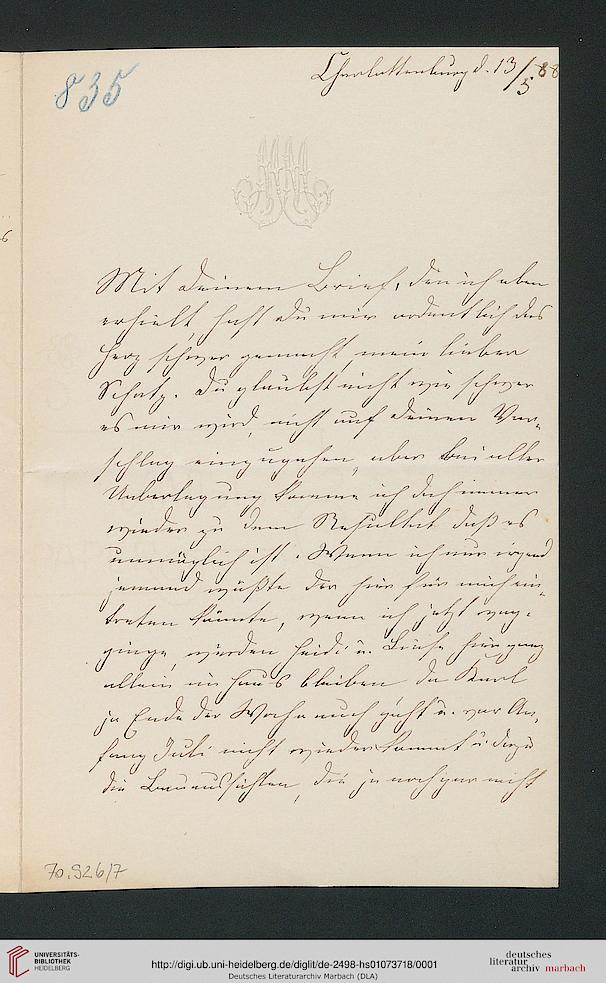 835
Charlottenburg d. 13/5 88
Mit deinem Brief, den ich eben
erhielt, hast du mir ordentlich das
Herz schwer gemacht, mein lieber
Schatz. Du glaubst nicht wie schwer
es mir wird, nicht auf deinen Vor-
schlag einzugehen, aber bei aller
Ueberlegung komme ich doch immer
wieder zu dem Resultat daß es
unmöglich ist. Wenn ich nur irgend
jemand wüßte der hier für mich ein-
treten könnte, wenn ich jetzt weg-
ginge, würden Heidi u. hier ganz
allein im Haus bleiben da Karl
ja Ende der Woche auch geht u. vor An-
fang Juli nicht wieder kommt u. dazu
die Bauaussichten, die ja noch gar nicht
70.926/7
UNIVERSITÄTS-
BIBLIOTHEK
HEIDELBERG
http://digi.ub.uni-heidelberg.de/diglit/de-2498-hs01073718/0001
Deutsches Literaturarchiv Marbach (DLA)
deutsches
literatur
archiv marbach